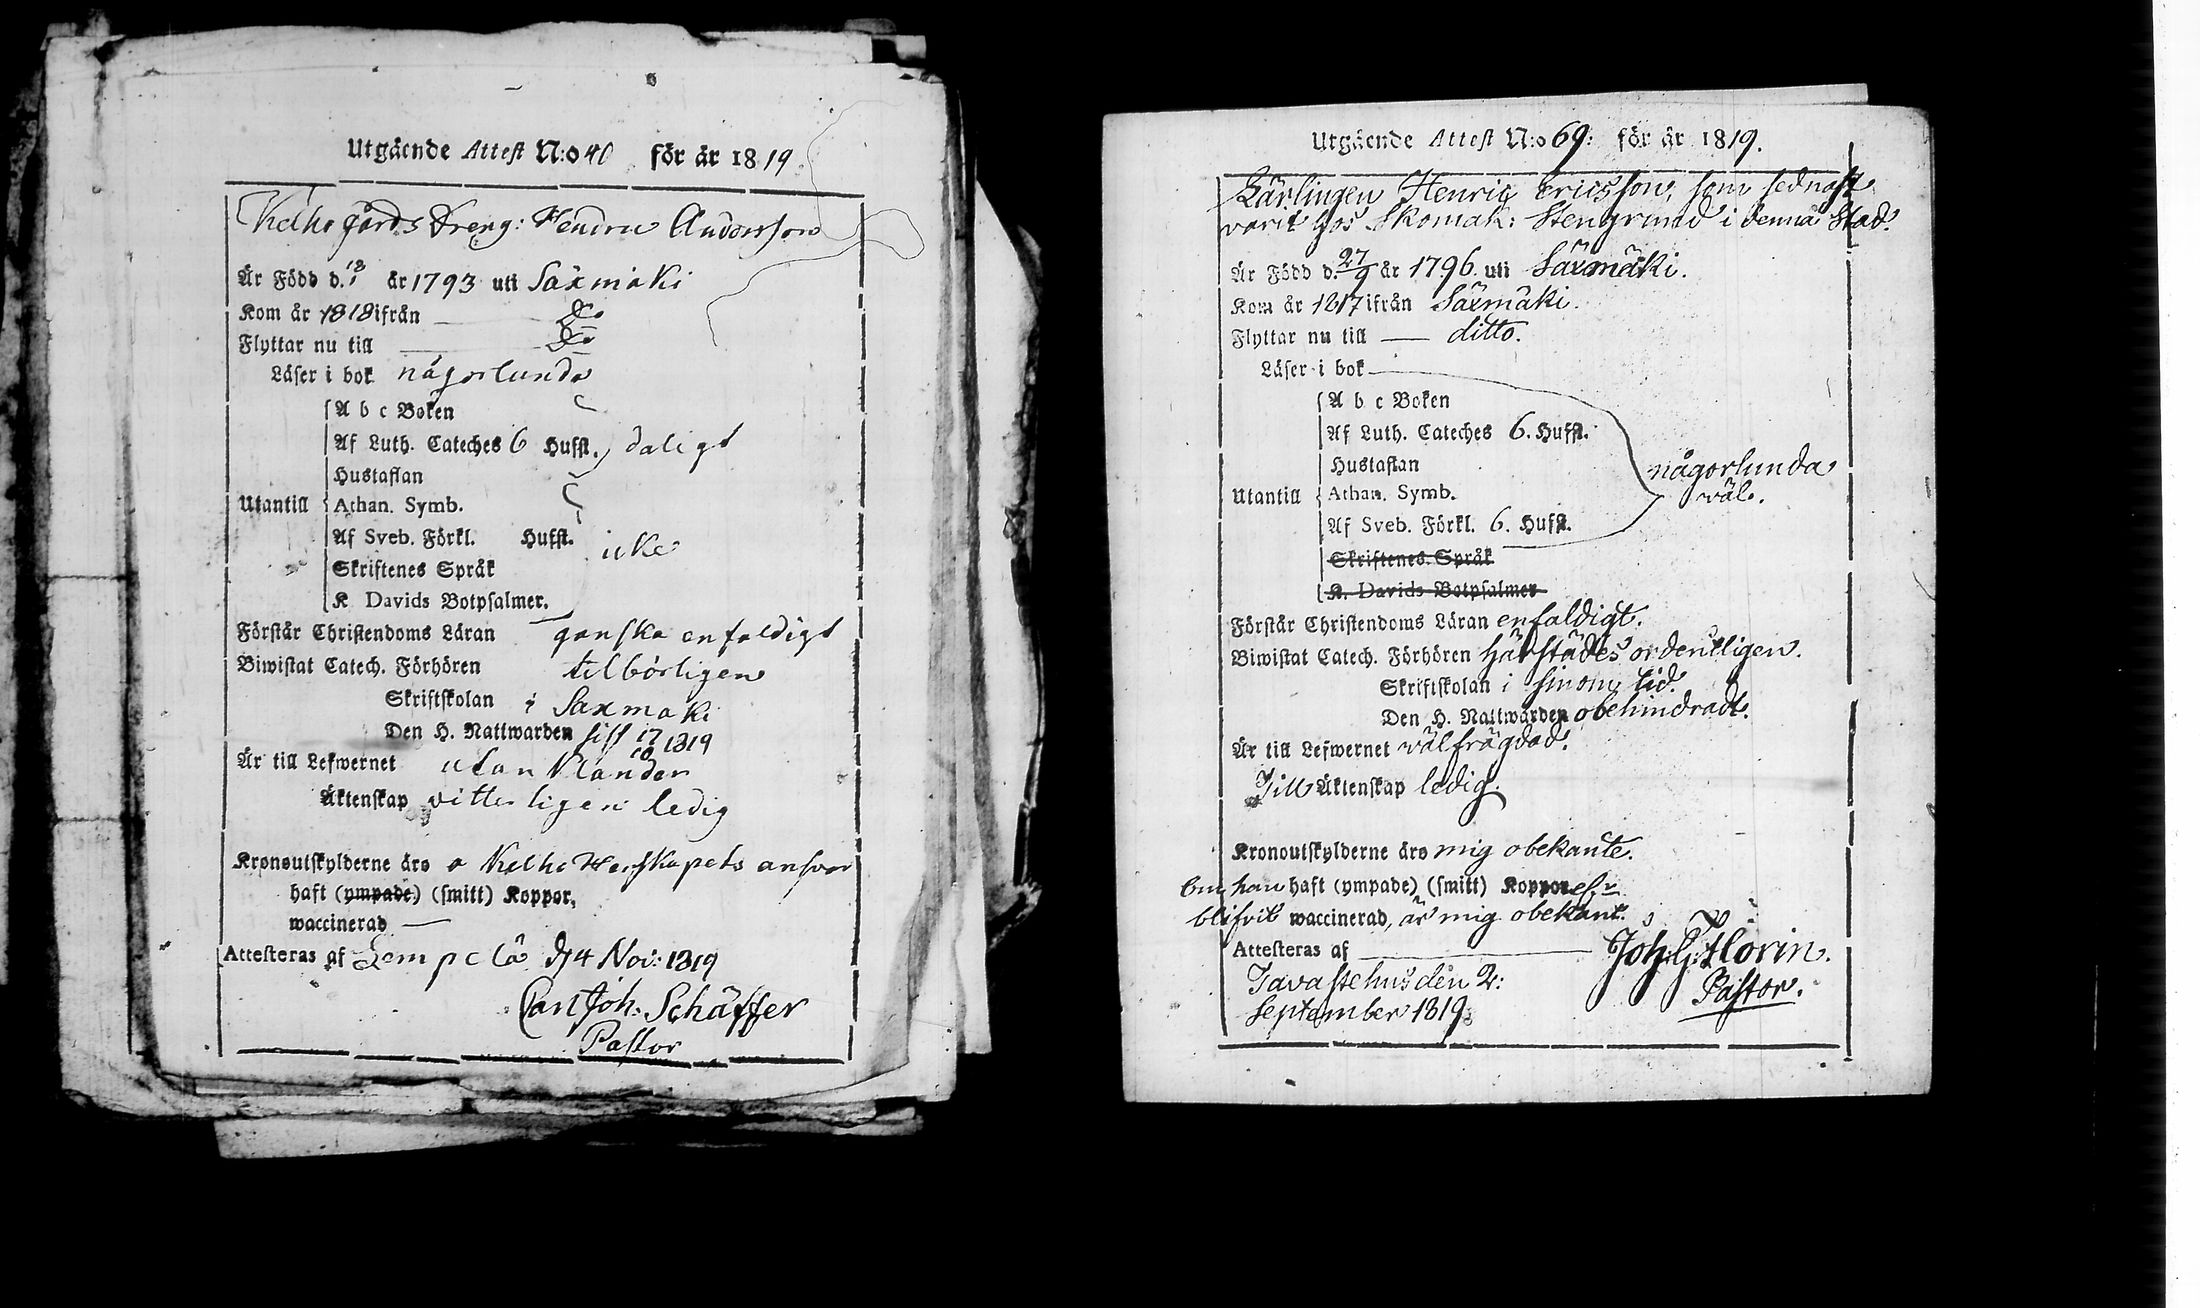 Utgående Attest N:o 40 för år 1819.
Kelho gårds Dreng: Hendric Andersson
Är Född d. 18/1 år 1793 uti Saxmäki
Kom år 1818 ifrån — Do
Flyttar nu till — Do
Läser i bok någorlunda
A b c Boken
Af Luth. Cateches 6 Hufst. daligt
Hustaflan
Utantill Athan. Symb.
Af Sveb. Förkl. Hufst. icke
Skriftenes Språk
K Davids Botpsalmer.
Förstår Christendoms Läran ganska enfaldigt
Biwistat Catech. Förhören tilbörligen
Skriftskolan i Saxmäki
Den H. Nattwarden sist 17/10 1819
Är till Lefwernet utan Klander
Äktenskap vitterligen ledig
Kronoutskylderne äro å Kelho Herskapets ansvar
haft (ympade) (smitt) Koppor,
waccinerad —
Attesteras af Lempelä d 4 Nov: 1819
Carl Joh. Schäffer
Pastor
Utgående Attest N:o 69: för år 1819.
Lärlingen Henric Ericsson, som sednast
varit hos Skomak: Stengrund i denna Stad.
Är Född d. 27/9 år 1796. uti Säxmäki.
Kom år 1817 ifrån Säxmäki.
Flyttar nu till — ditto.
Läser i bok
A b c Boken
Af Luth. Cateches 6. Hufst.
Hustaflan någorlunda
Utantill Athan. Symb. väl.
Af Sveb. Förkl. 6. Hufst.
Skriftenes Språk
K. Davids Botpsalmer
Förstår Christendoms Läran enfaldigt.
Biwistat Catech. Förhören härstädes ordentligen.
Skriftskolan i sinom tid.
Den H. Nattwarden obehindradt.
Är till Lefwernet välfrägdad.
Till Äktenskap ledig.
Kronoutskylderne äro mig obekante.
Om han haft (ympade) (smitt) Koppor elr
blifvit waccinerad, är mig obekant.
Attesteras af — Joh. G. Florin.
Tavastehus den 2: Pastor.
September 1819.